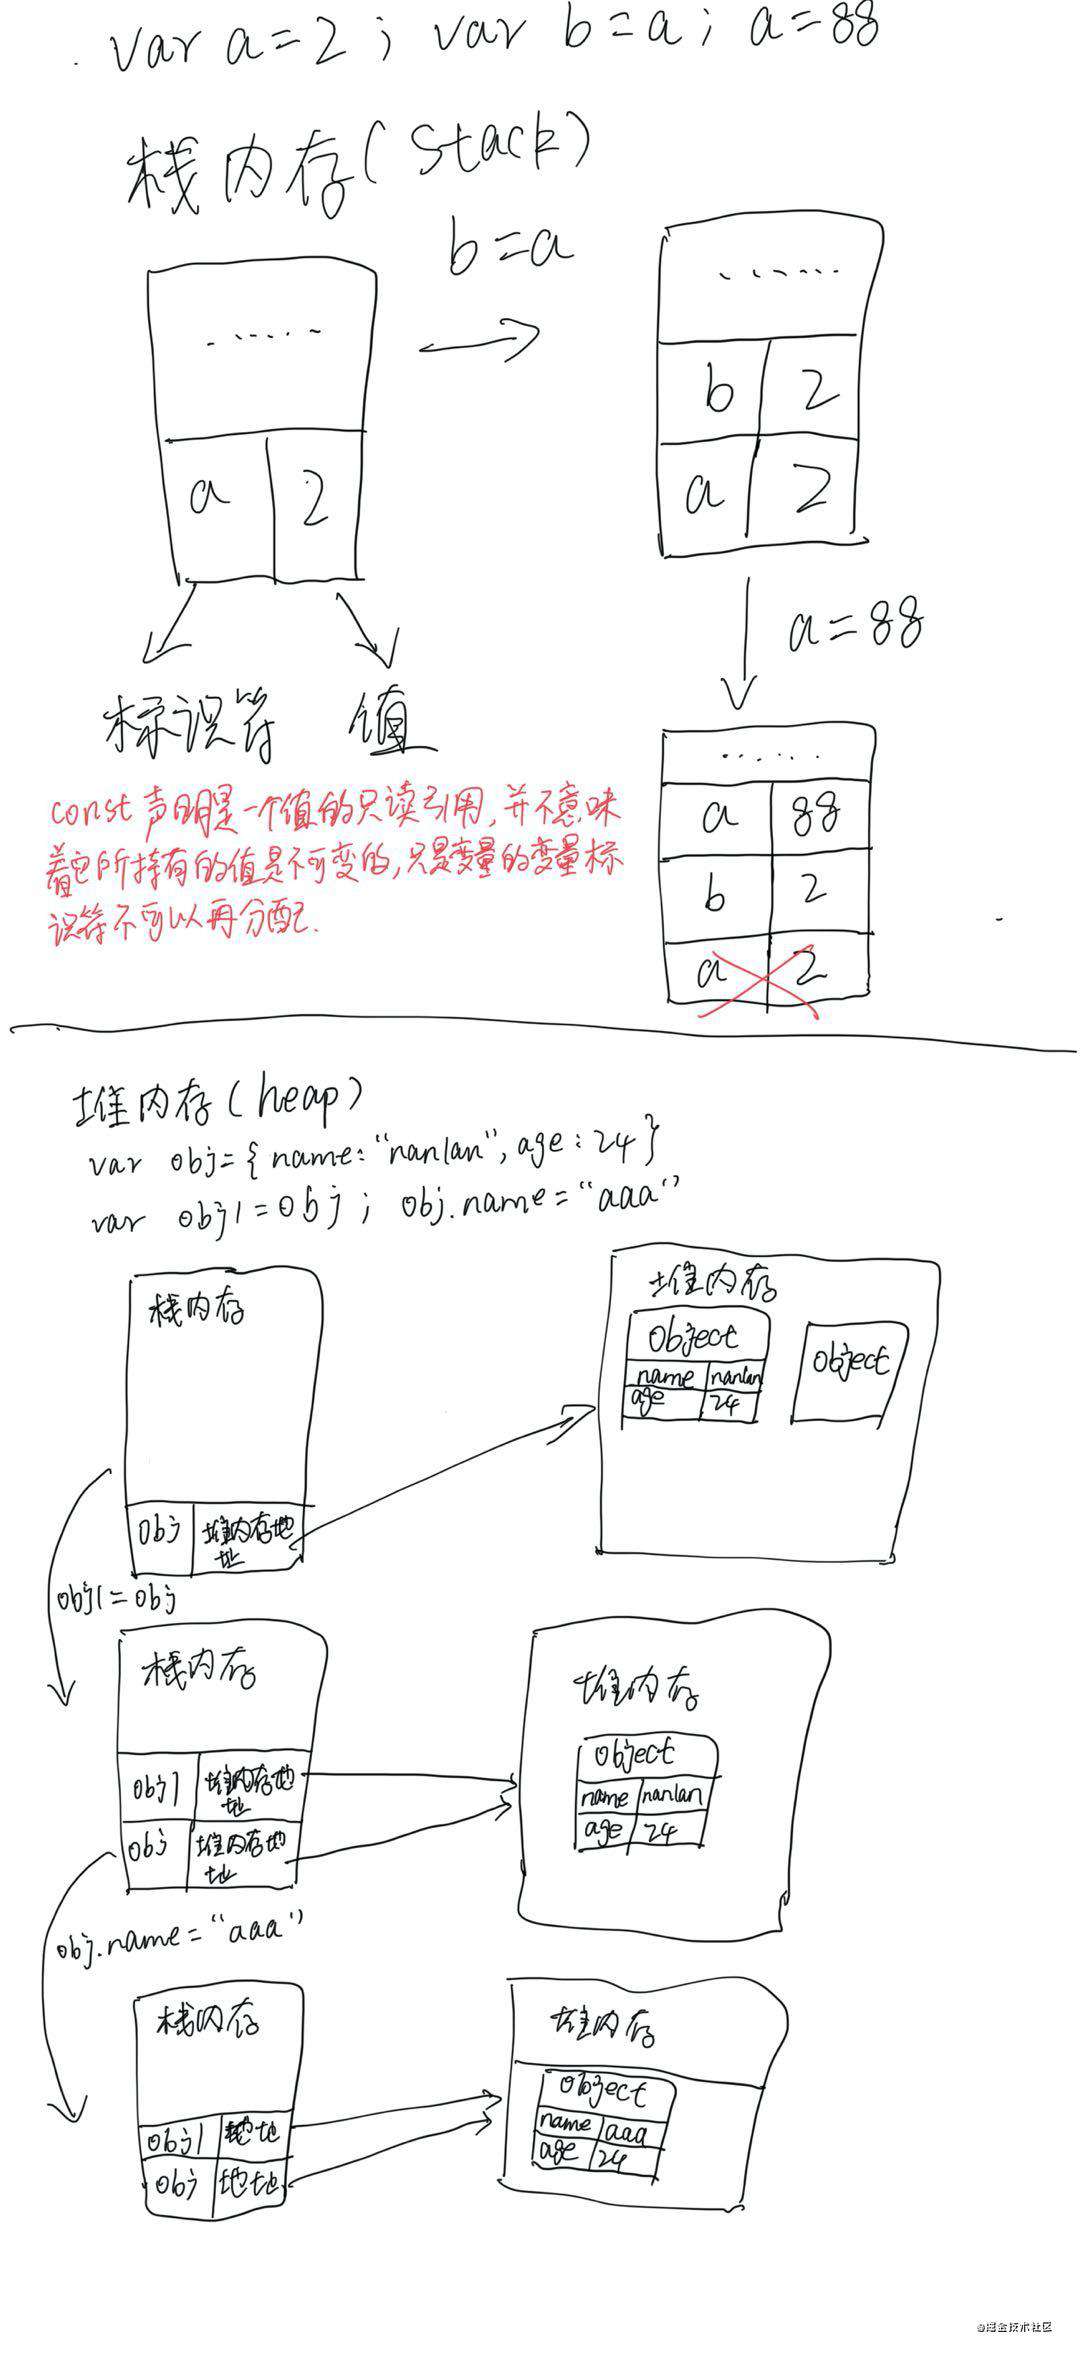 var a=2; var b=a; a=88
栈内存(stack)
b=a
......
a 2
......
b 2
a 2
a=88
标识符 值
......
a 88
b 2
a 2
const声明是一个值的只读引用,并不意味
着它所持有的值是不可变的,只是变量的变量标
识符不可以再分配.
堆内存(heap)
var obj={name:"nanlan",age:24}
var obj1=obj; obj.name="aaa"
栈内存
obj 堆内存地
址
堆内存
object
name nanlan
age 24
object
obj1=obj
栈内存
obj1 堆内存地
址
obj 堆内存地
址
堆内存
object
name nanlan
age 24
obj.name="aaa"
栈内存
obj1 地址
obj 地址
堆内存
object
name aaa
age 24
@掘金技术社区